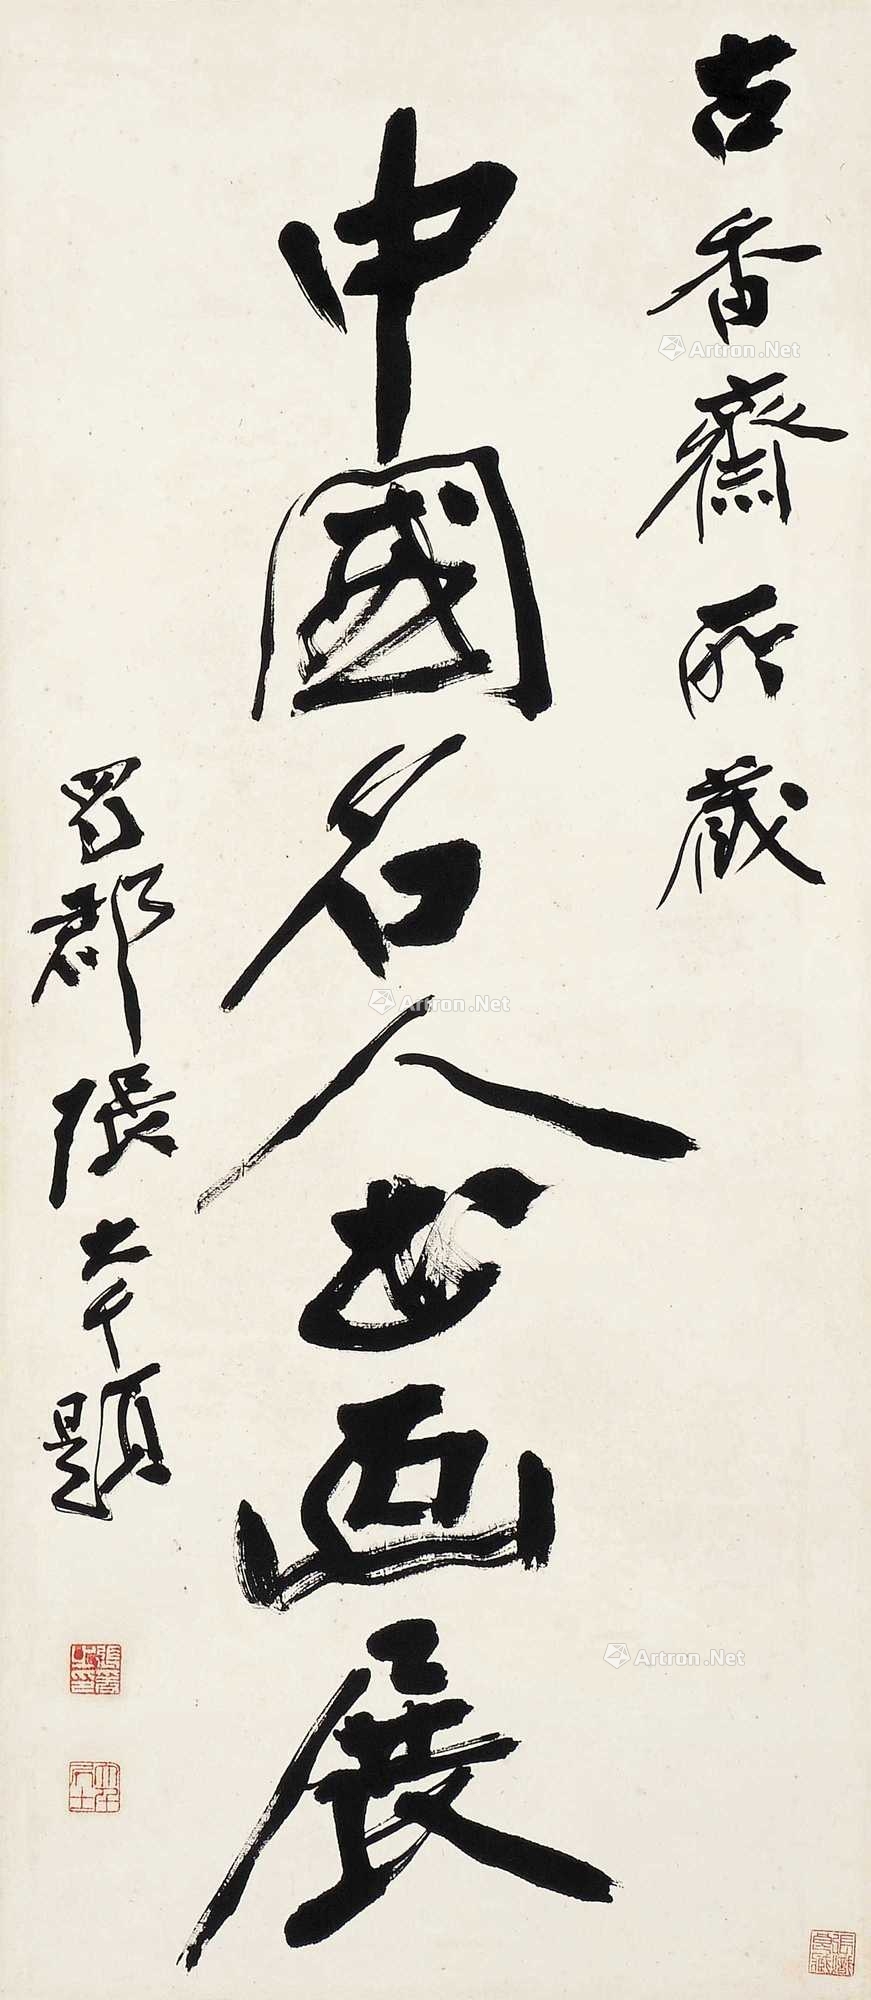 古香齋所藏
中國名人书画展
蜀郡張大千題
Artron.Net
Artron.Net
Artron.Net
大千居士